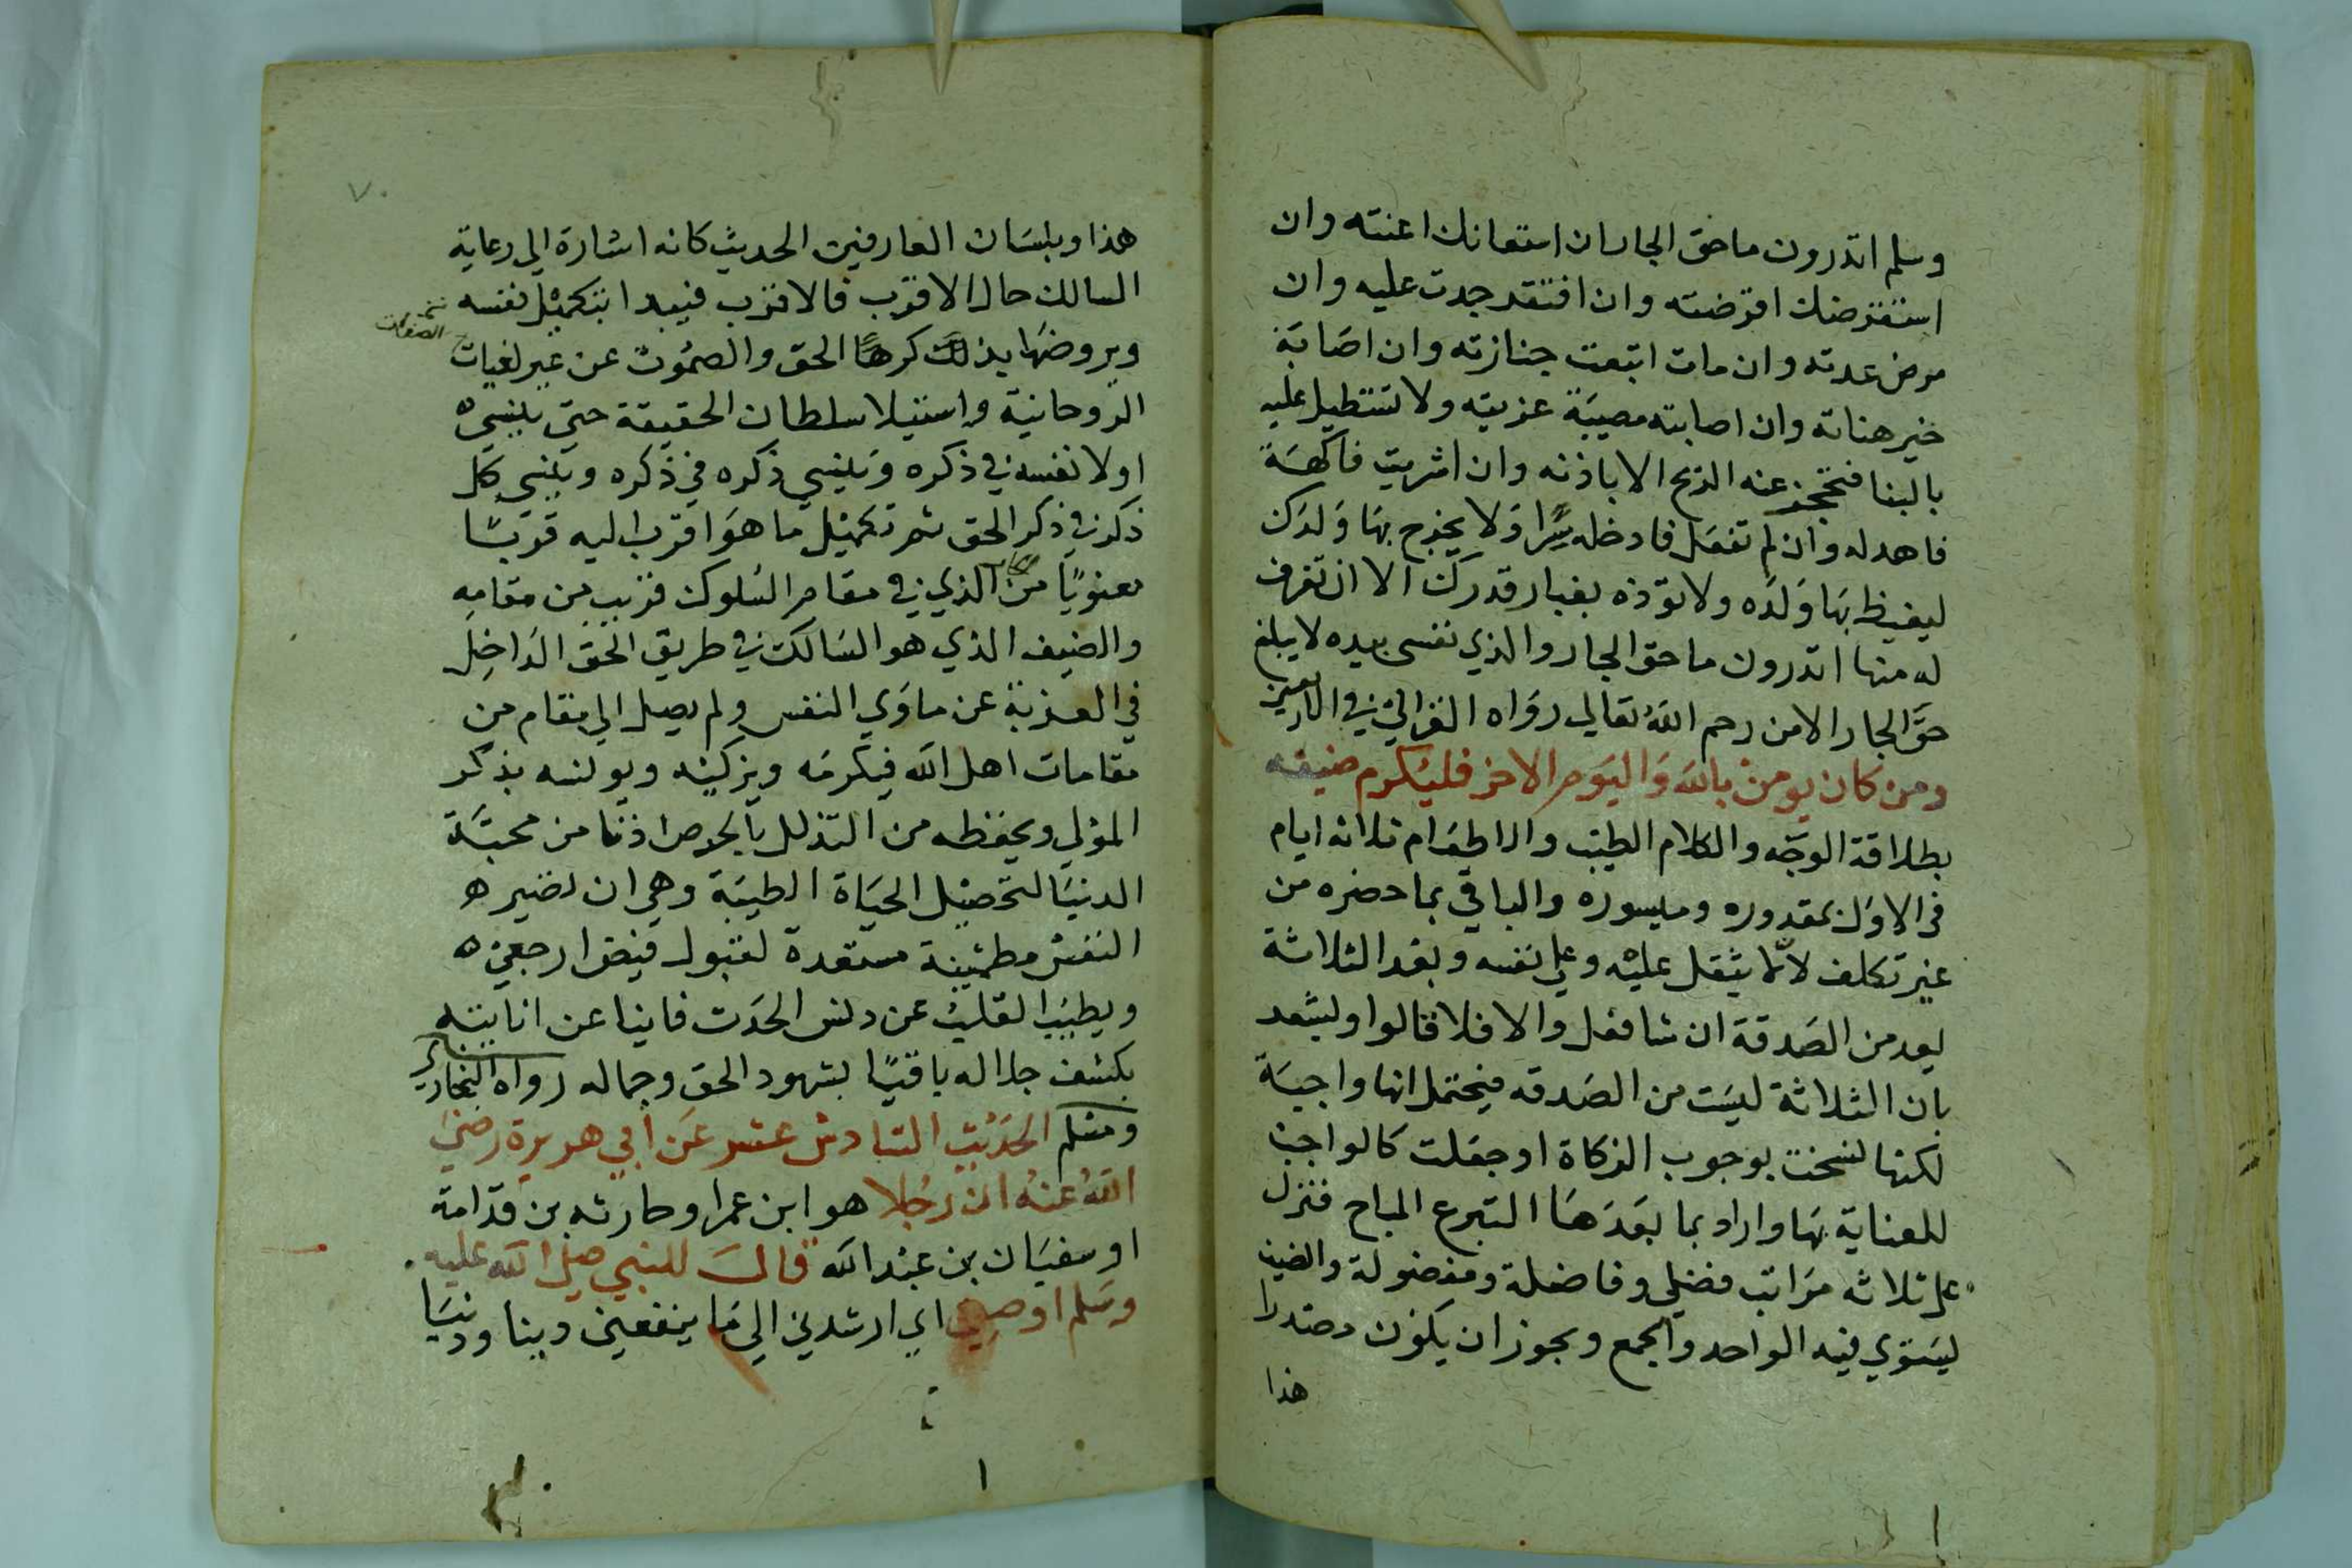 وسلم اتدرون ما حق الجار ان استعانك اعنته وان
استقرضك اقرضته وان افتقر جدت عليه وان
مرض عدته وان مات اتبعت جنازته وان اصابه
خير هناته وان اصابته مصيبة عزيته ولا تستطيل عليه
بالبنا فتحجز عنه الريح الا باذنه وان اشريت فاكهة
فاهد له وان لم تفعل فادخله سرا ولا يخرج بها ولدك
ليغيظ بها ولده ولا توذه بغبار قدرك الا ان تغرف
له منها اتدرون ما حق الجار والذي نفسي بيده لا يبلغ
حق الجار الا من رحم الله تعالي رواه الغزالي في الاربعين
ومن كان يومن بالله واليوم الاخر فليكرم ضيفه
بطلاقة الوجه والكلام الطيب والاطعام ثلاثه ايام
في الاول بمقدوره وميسوره والباقي بما حضره من
غير تكلف لالما يثقل عليه وعلي نفسه وبعد الثلاثة
يعد من الصدقة ان شا فعل والا فلا قالوا وليشعد
بان الثلاثة ليست من الصدقه فيحتمل انها واجبة
لكنها نسخت بوجوب الزكاة او جعلت كالواجب
للعناية بها واراد بما بعدها التبرع المباح فتزل
علي ثلاثه مراتب فضلي وفاضلة ومفضولة والضيف
يستوي فيه الواحد والجمع ويجوز ان يكون مصدرا
هذا
٧٠
هذا وبلسان العارفين الحديث كانه اشارة الي رعاية
السالك حال الاقرب فالاقرب فيبدا بتكميل نفسه
ويروضها بذلك كرها الحق والصموت عن غير لغيات
الصفات
الروحانية واستيلا سلطان الحقيقة حتي ينسي
اولا نفسه في ذكره وينسي ذكره في ذكره وينسي كل
ذكر في ذكر الحق ثم تكميل ما هو اقرب اليه قربا
معنويا من الذي في مقام السلوك قريب من مقامه
والضيف الذي هو السالك في طريق الحق الداخل
في الغربة عن ماوي النفس ولم يصل الي مقام من
مقامات اهل الله فيكرمه ويزكيه ويونسه بذكر
المولي ويحفظه من التذلل بالحرص اذنا من محبة
الدنيا لتحصيل الحياة الطيبة وهي ان تصير
النفس مطمئنة مستعدة لقبول فيض ارجعي
ويطيب القلب عن دنس الحدث فانيا عن انانيته
بكشف جلاله باقيا بشهود الحق وجماله رواه البخاري
ومسلم الحديث السادس عشر عن أبي هريرة رضي
الله عنه ان رجلا هو ابن عمر او حارثه بن قدامة
او سفيان بن عبد الله قال للنبي صلي الله عليه
وسلم اوصني اي ارشدني الي ما ينفعني دينا ودنيا